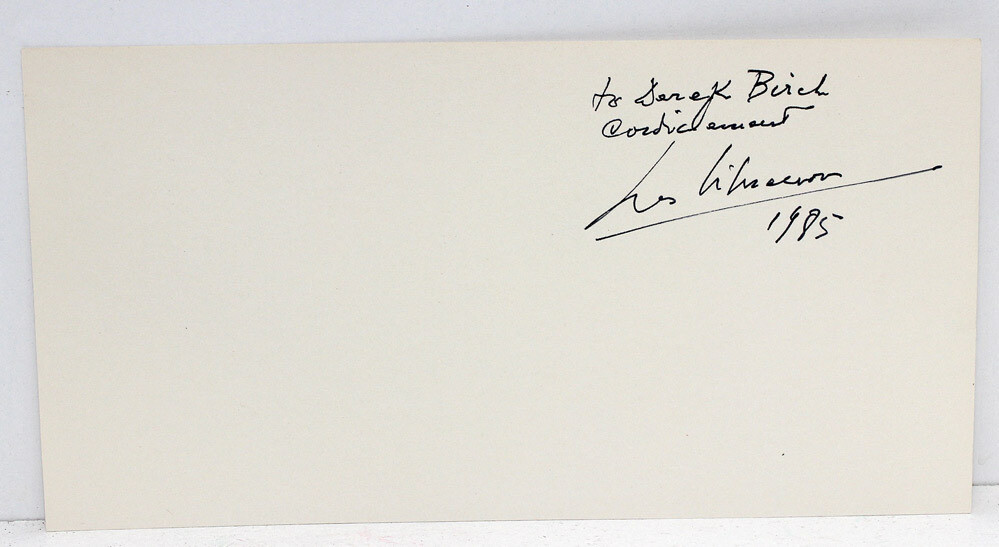 to Derek Birch
Cordialement
1985